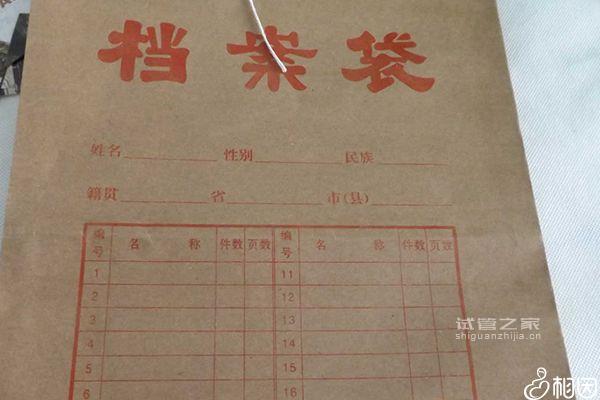 档案袋
姓名 性别 民族
籍贯 省 市(县)
编号 名 称 件数 页数 编号 名 称 件数 页数
1 11
2 12
3 13
4 14
5 15
6 16
试管之家
shiguanzhijia.cn
相因